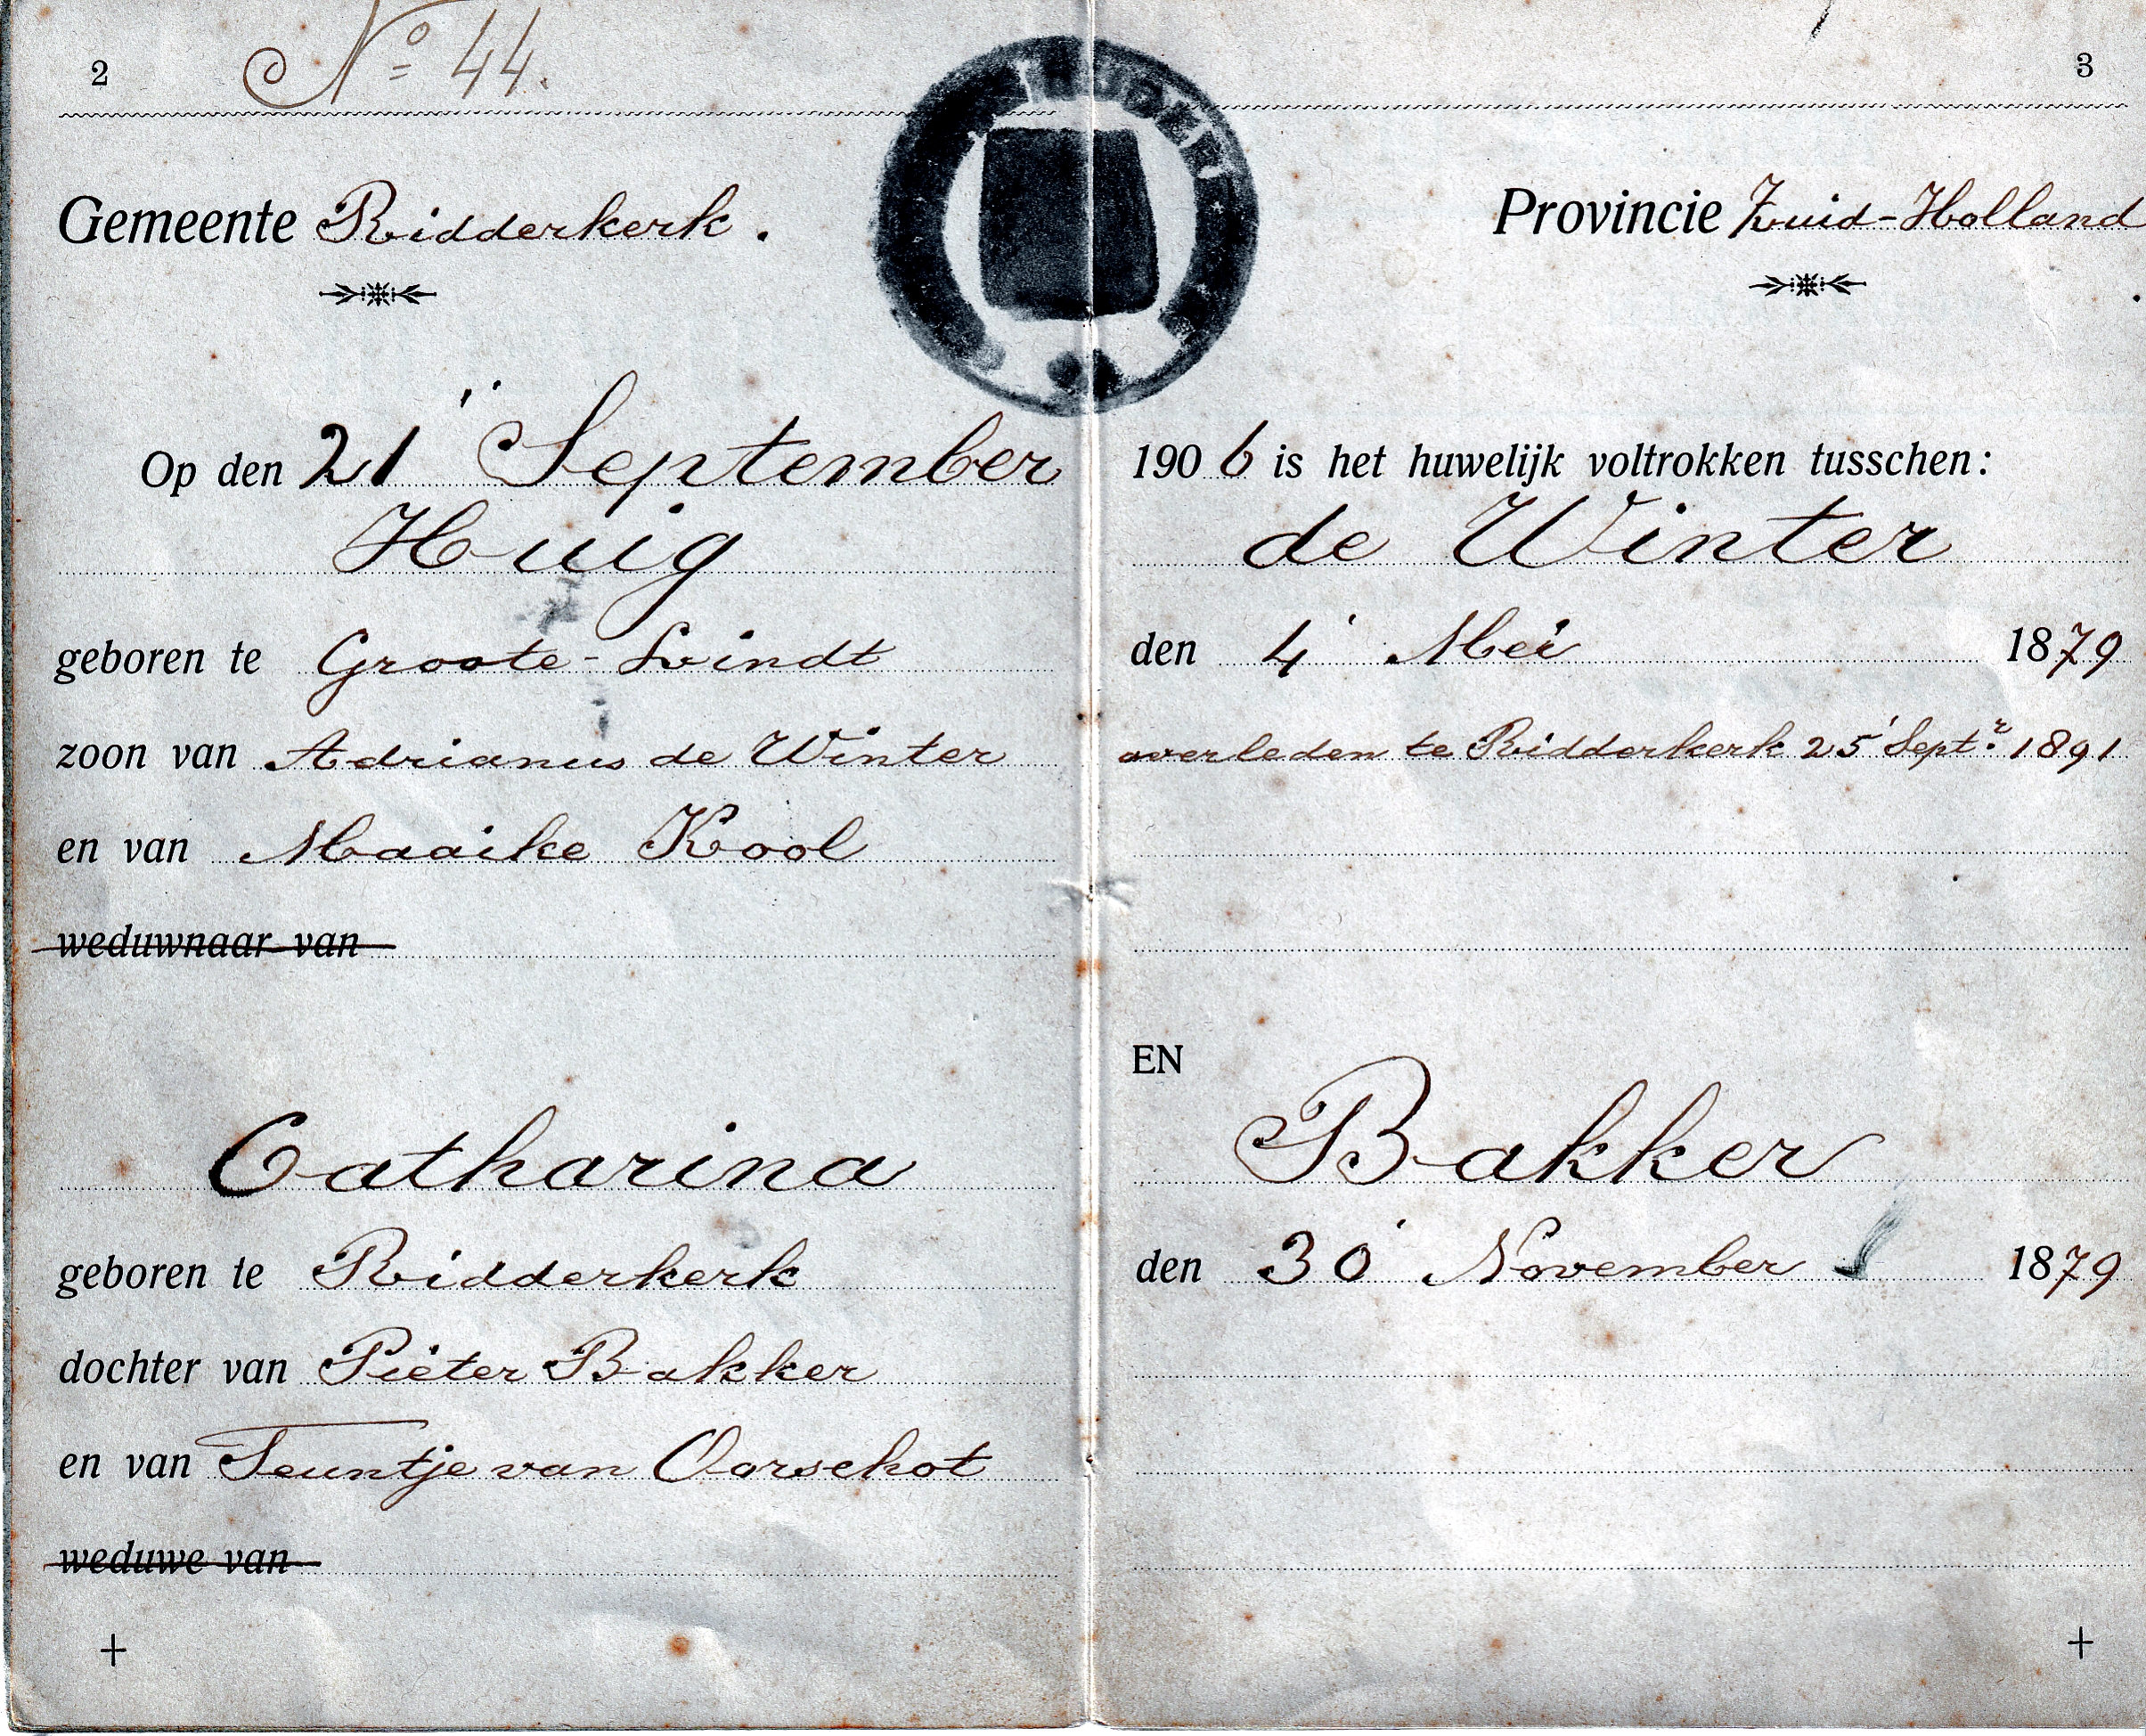 2 No 44. 3
Gemeente Ridderkerk. Provincie Zuid-Holland
Op den 21' September 1906 is het huwelijk voltrokken tusschen:
Huig de Winter
geboren te Groote-Lindt den 4' Mei 1879
zoon van Adrianus de Winter overleden te Ridderkerk 25' Septr. 1891
en van Maaike Kool
weduwnaar van
EN
Catharina Bakker
geboren te Ridderkerk den 30' November 1879
dochter van Pieter Bakker
en van Teuntje van Oorschot
weduwe van